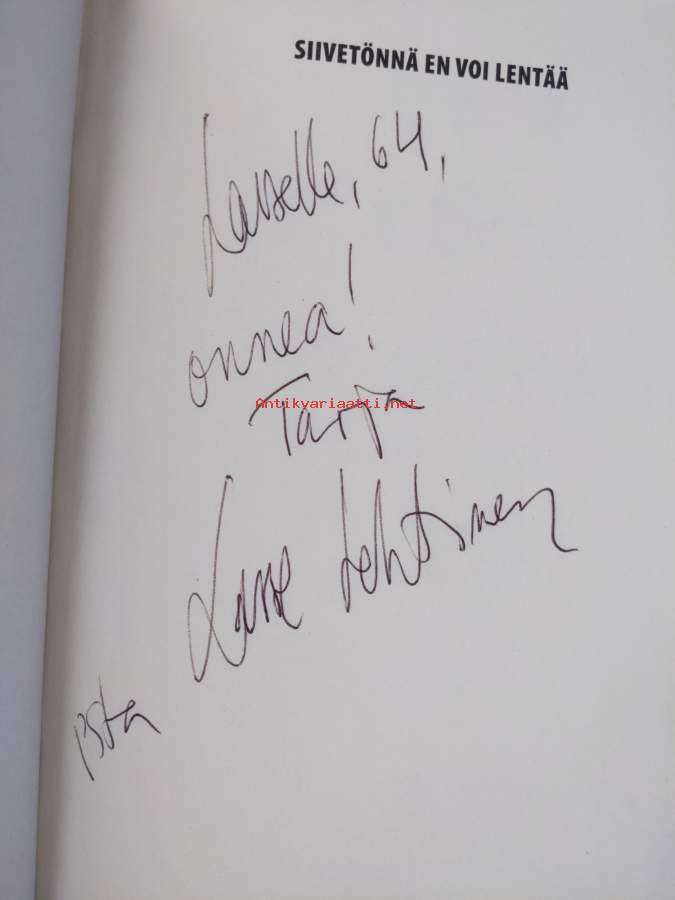 SIIVETÖNNÄ EN VOI LENTÄÄ
Lasselle, 64,
onnea!
Antikyariaatti.net
Tarja
Lasse Lehtinen